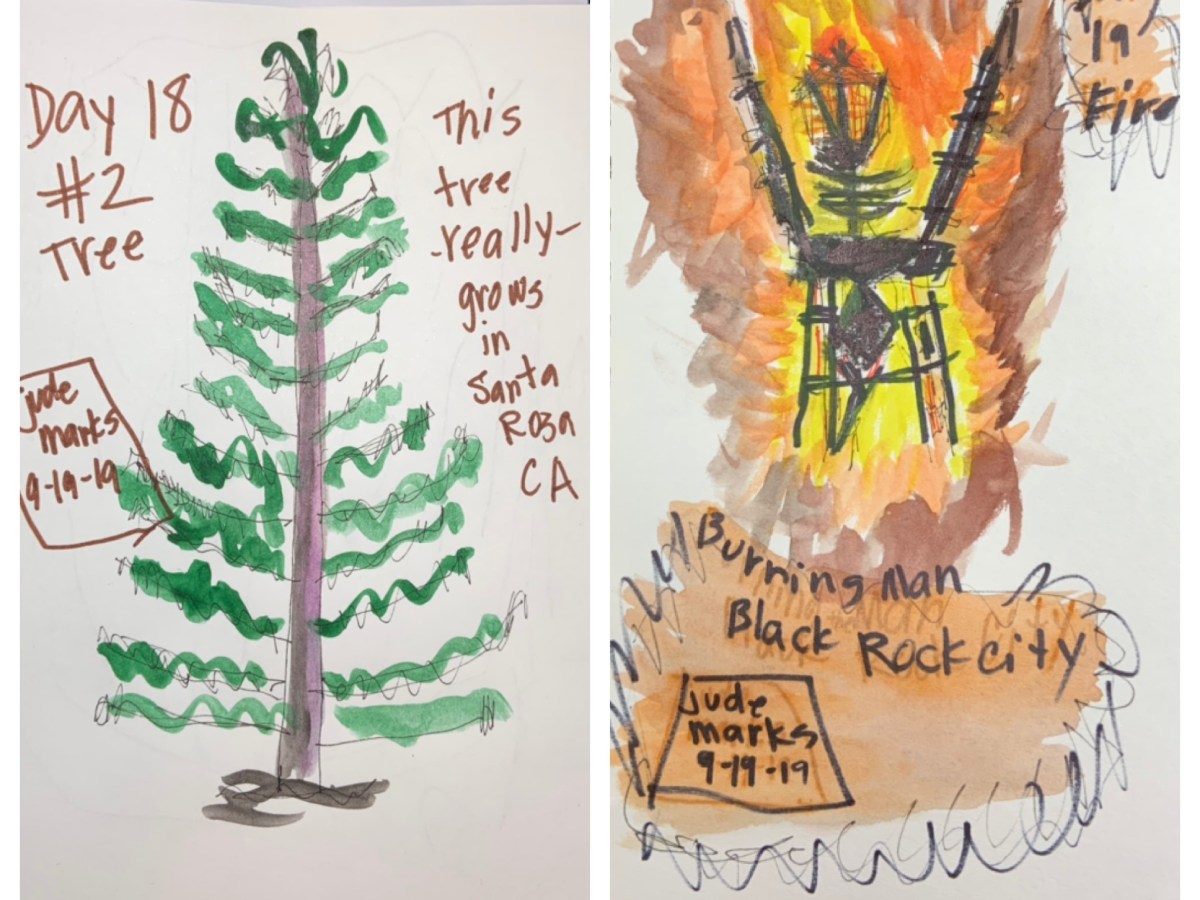 Day 18
#2
Tree
This
tree
really
grows
in
Santa
Rosa
CA
jude
marks
9-19-19
19
Fire
Burning Man
Black Rock City
jude
marks
9-19-19